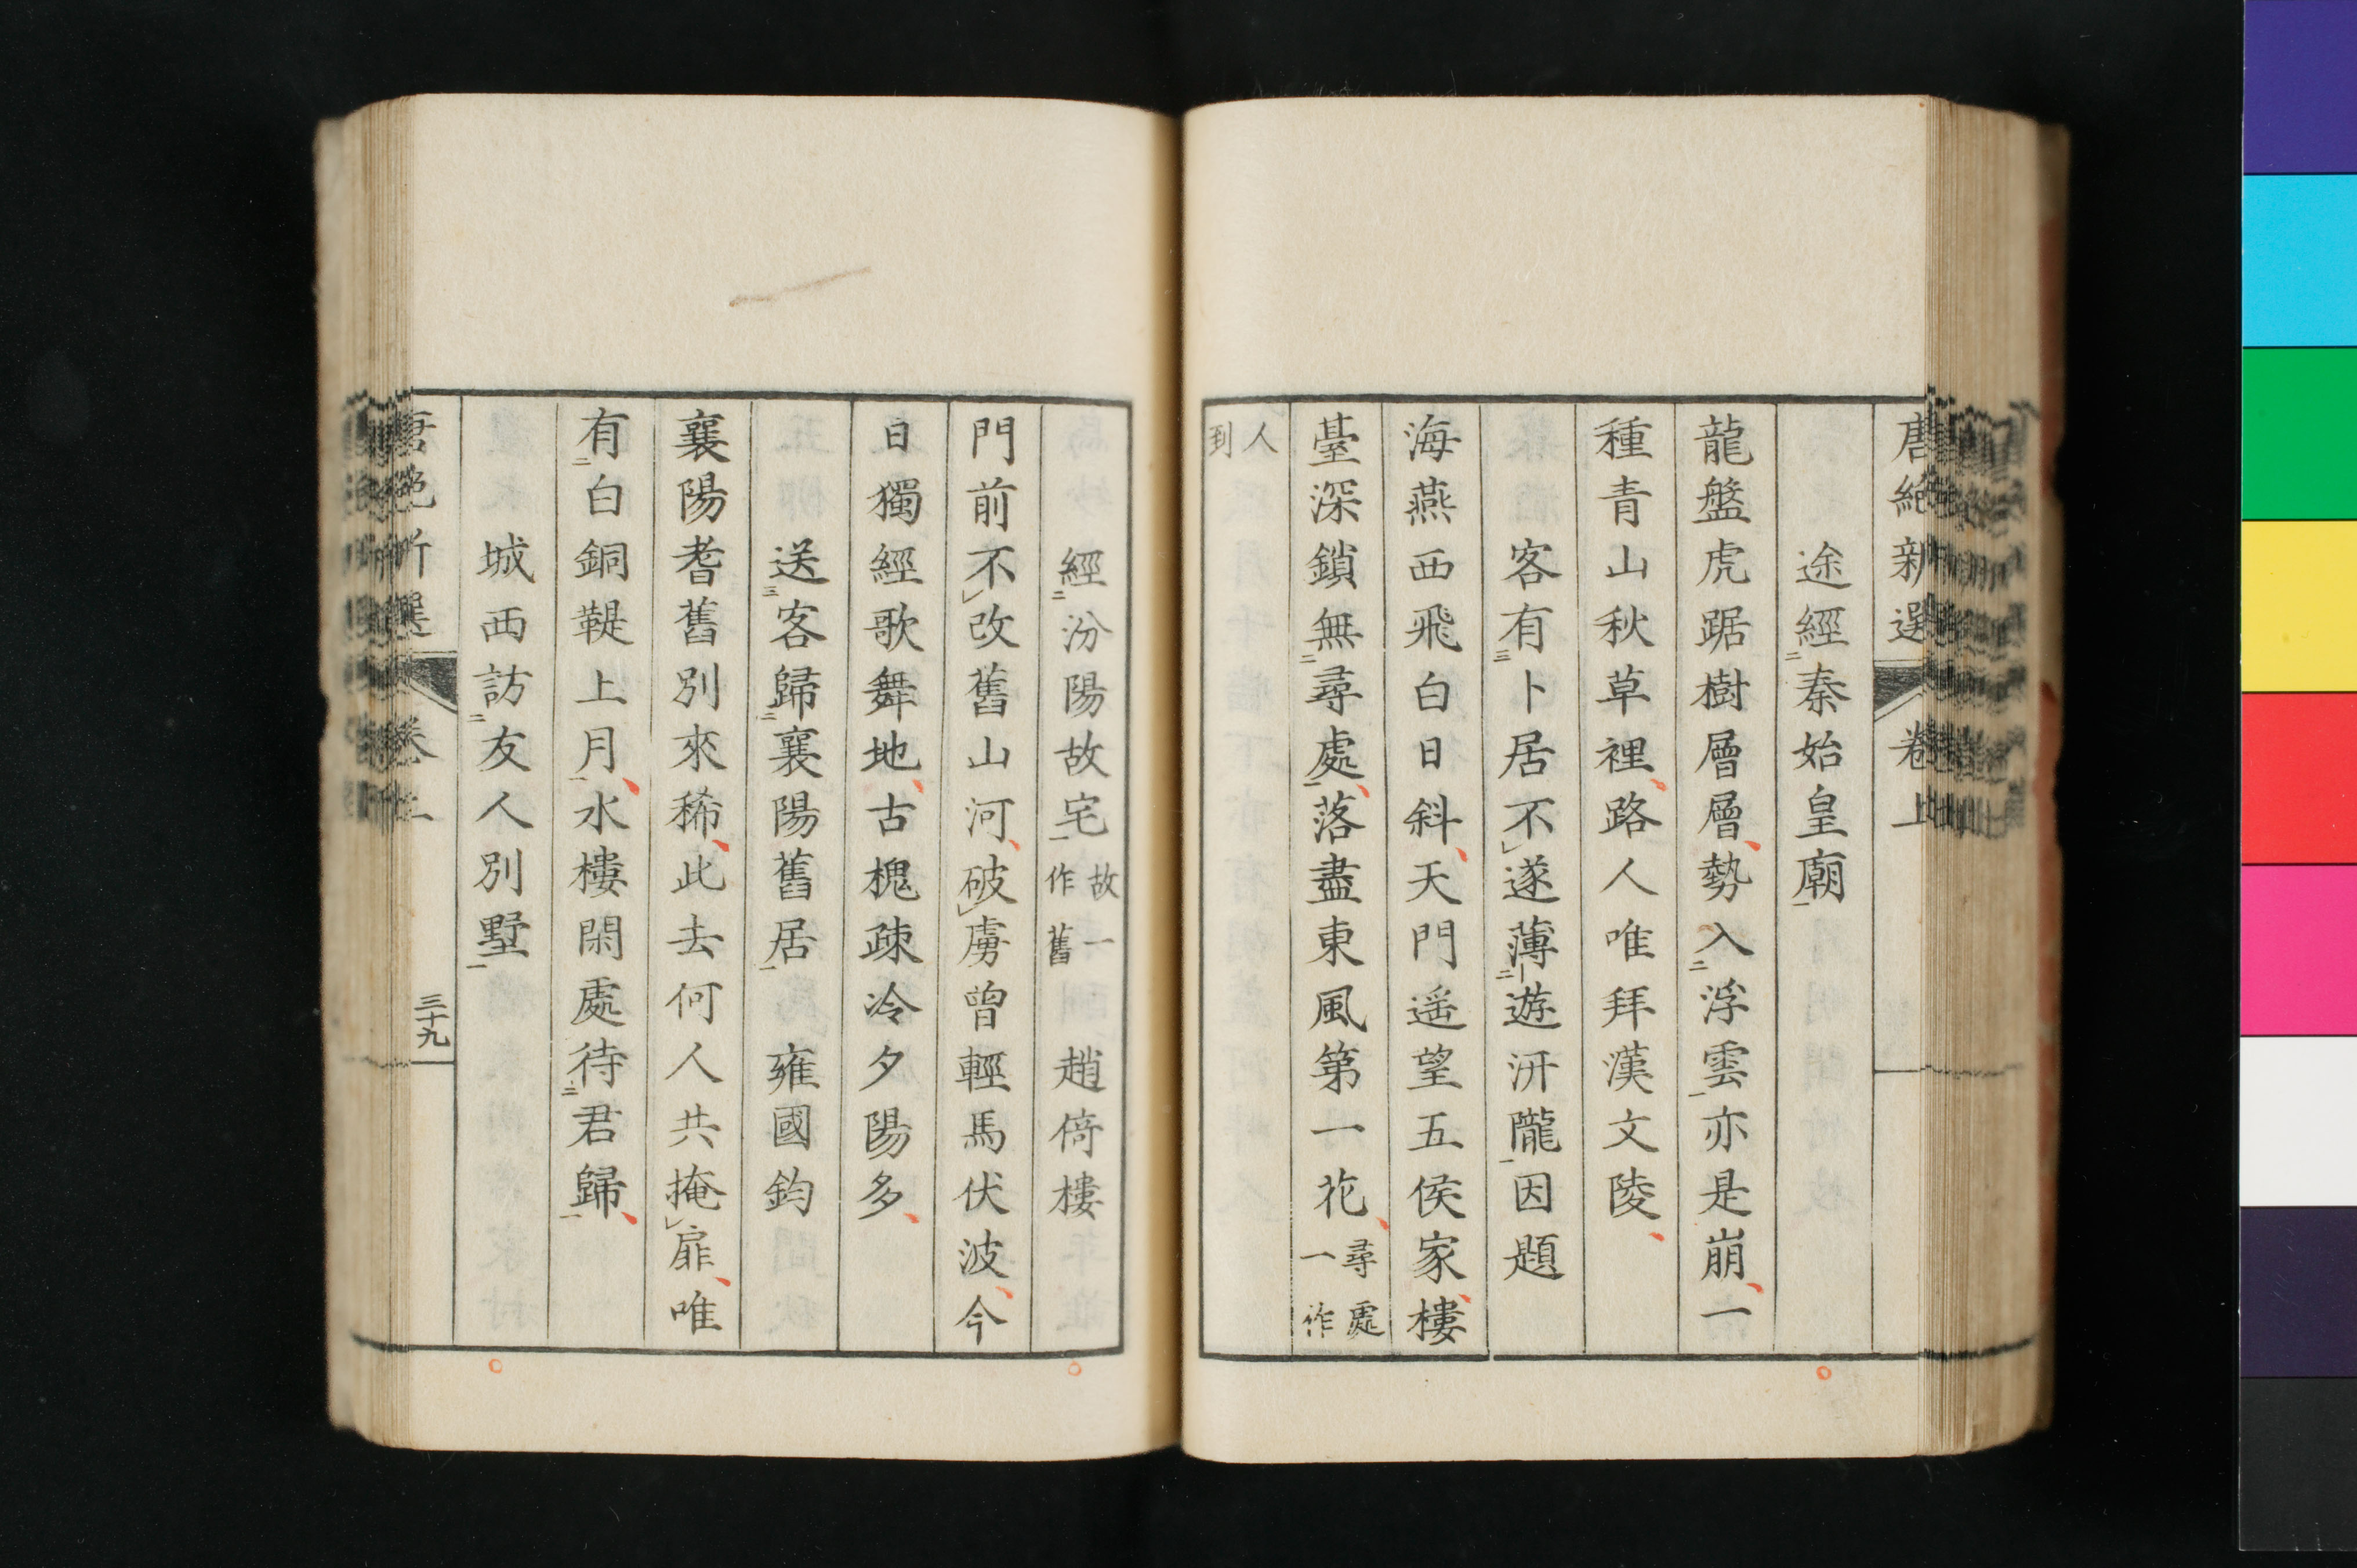 唐絶新選 卷上
途經秦始皇廟
龍盤虎踞樹層層勢入浮雲亦是崩一
種青山秋草裡路人唯拜漢文陵
客有卜居不遂薄遊汧隴因題
海燕西飛白日斜天門遥望五侯家樓
臺深鎖無尋處落盡東風第一花尋處一作
人到
經汾陽故宅故一作舊 趙倚樓
門前不改舊山河破虜曾輕馬伏波今
日獨經歌舞地古槐疎冷夕陽多
送客歸襄陽舊居 雍國鈞
襄陽耆舊別來稀此去何人共掩扉唯
有白銅鞮上月水樓閑處待君歸
城西訪友人別墅
唐絶新選 卷上 三十九